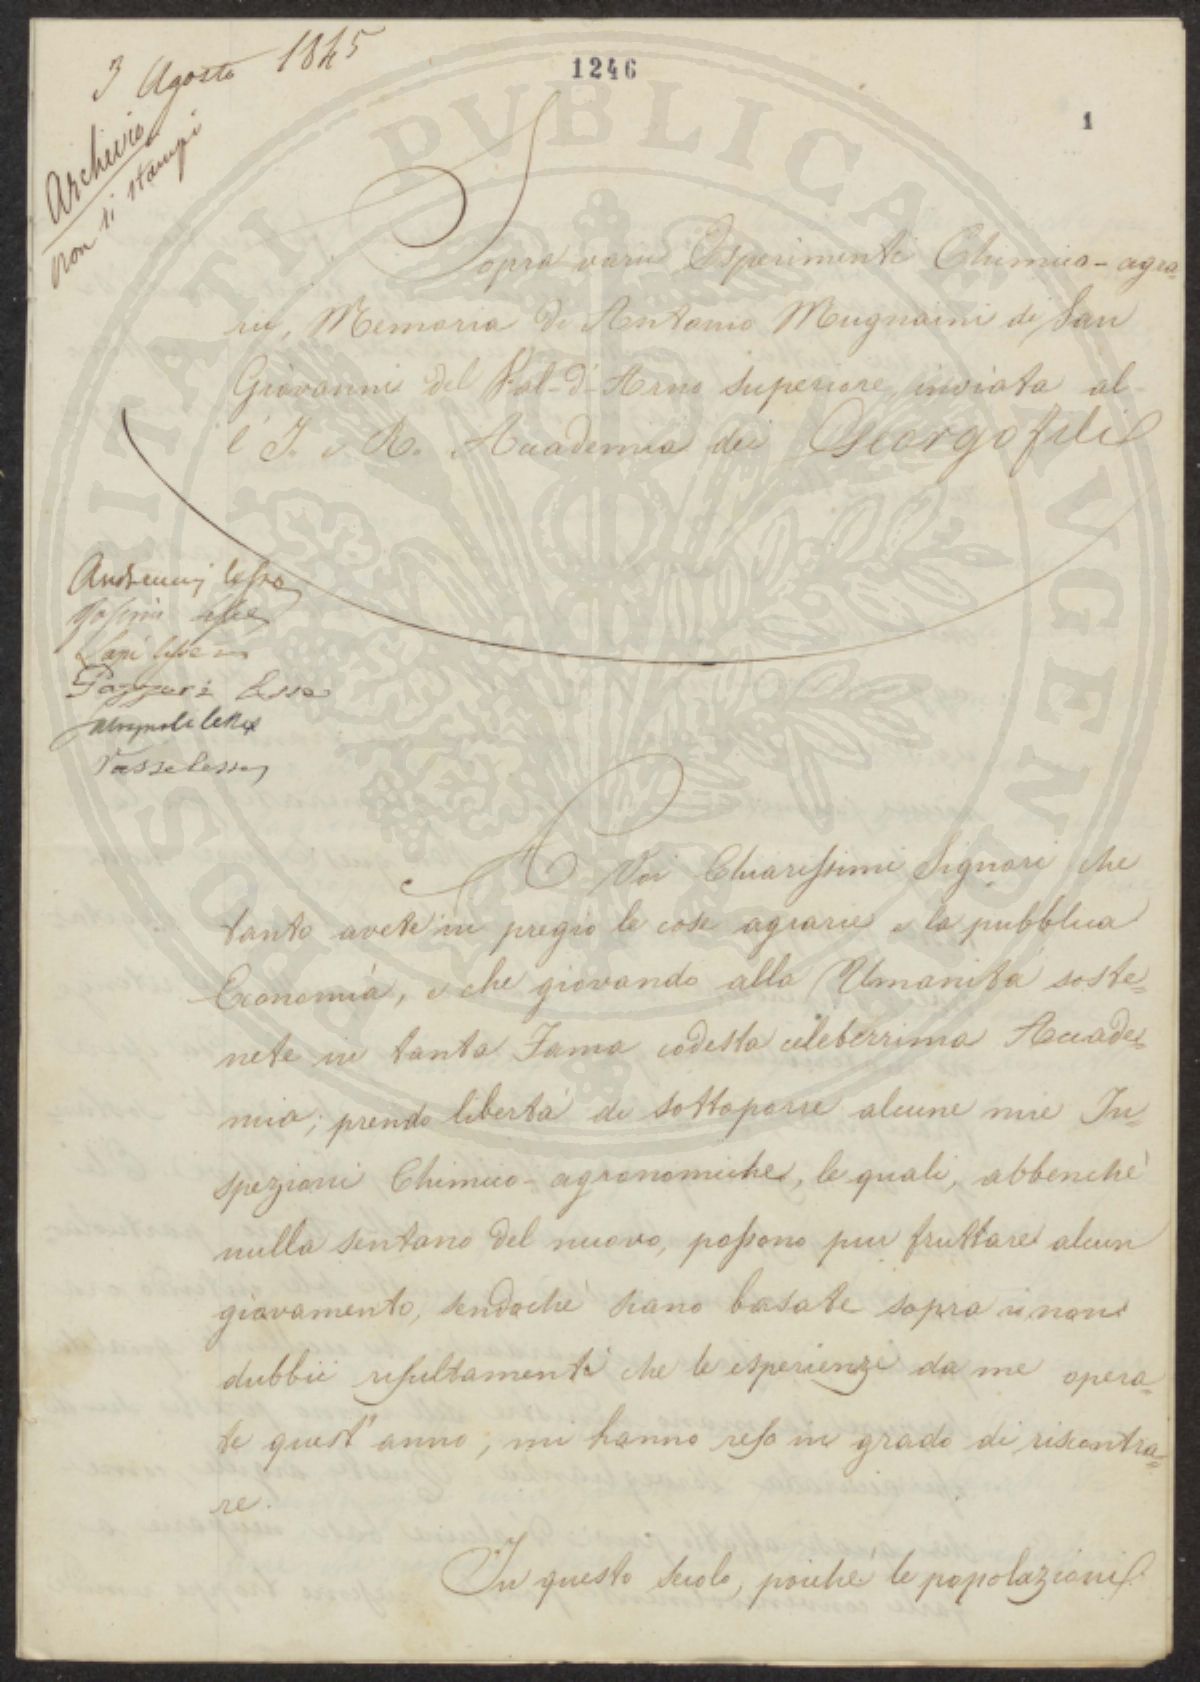 3 Agosto 1845
Archivio
non si stampi
1246
1
Sopra varii Esperimenti Chimico-agra=
rii, Memoria di Antonio Mugnaini di San
Giovanni del Val-d'-Arno superiore, inviata al-
l'I. e R. Accademia dei Georgofili
Lapi
Pazzeri Lesse
Lesse
Tasse Lesse
A Voi Chiarissimi Signori che
tanto avete in pregio le cose agrarie e la pubblica
Economia, e che giovando alla Umanità soste=
nete in tanta Fama codesta celeberrima Accade=
mia; prendo libertà di sottoporre alcune mie In=
spezioni Chimico-agronomiche, le quali, abbenchè
nulla sentano del nuovo, possono pur fruttare alcun
giovamento, sendochè siano basate sopra i non
dubbii resultamenti che le esperienze da me opera=
te quest'anno, mi hanno reso in grado di riscontra=
re.
In questo secolo, poichè le popolazioni
PUBLICAE